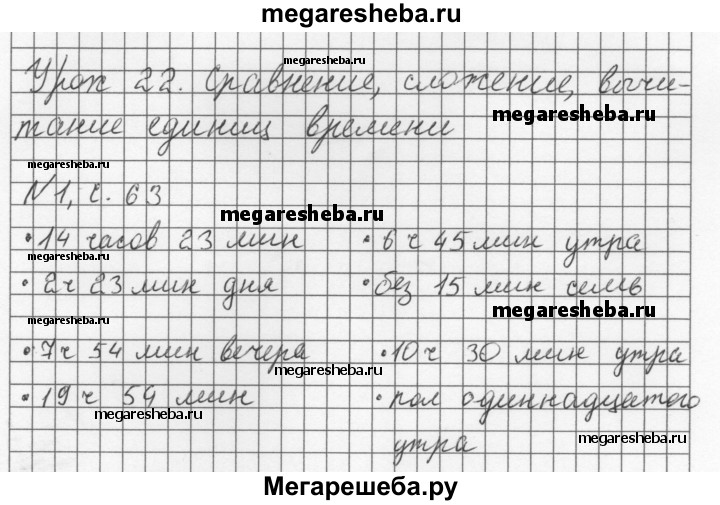 megaresheba.ru
megaresheba.ru
Урок 22. Сравнение, сложение, вычи-
megaresheba.ru
тание единиц времени
megaresheba.ru
№1, с. 63
megaresheba.ru
• 14 часов 23 мин • 6 ч 45 мин утра
megaresheba.ru
• 2 ч 23 мин дня • без 15 мин семь
megaresheba.ru
megaresheba.ru
• 7 ч 54 мин вечера • 10 ч 30 мин утра
megaresheba.ru
• 19 ч 54 мин • пол одиннадцатого
megaresheba.ru
утра
megaresheba.ru
Мегарешеба.ру